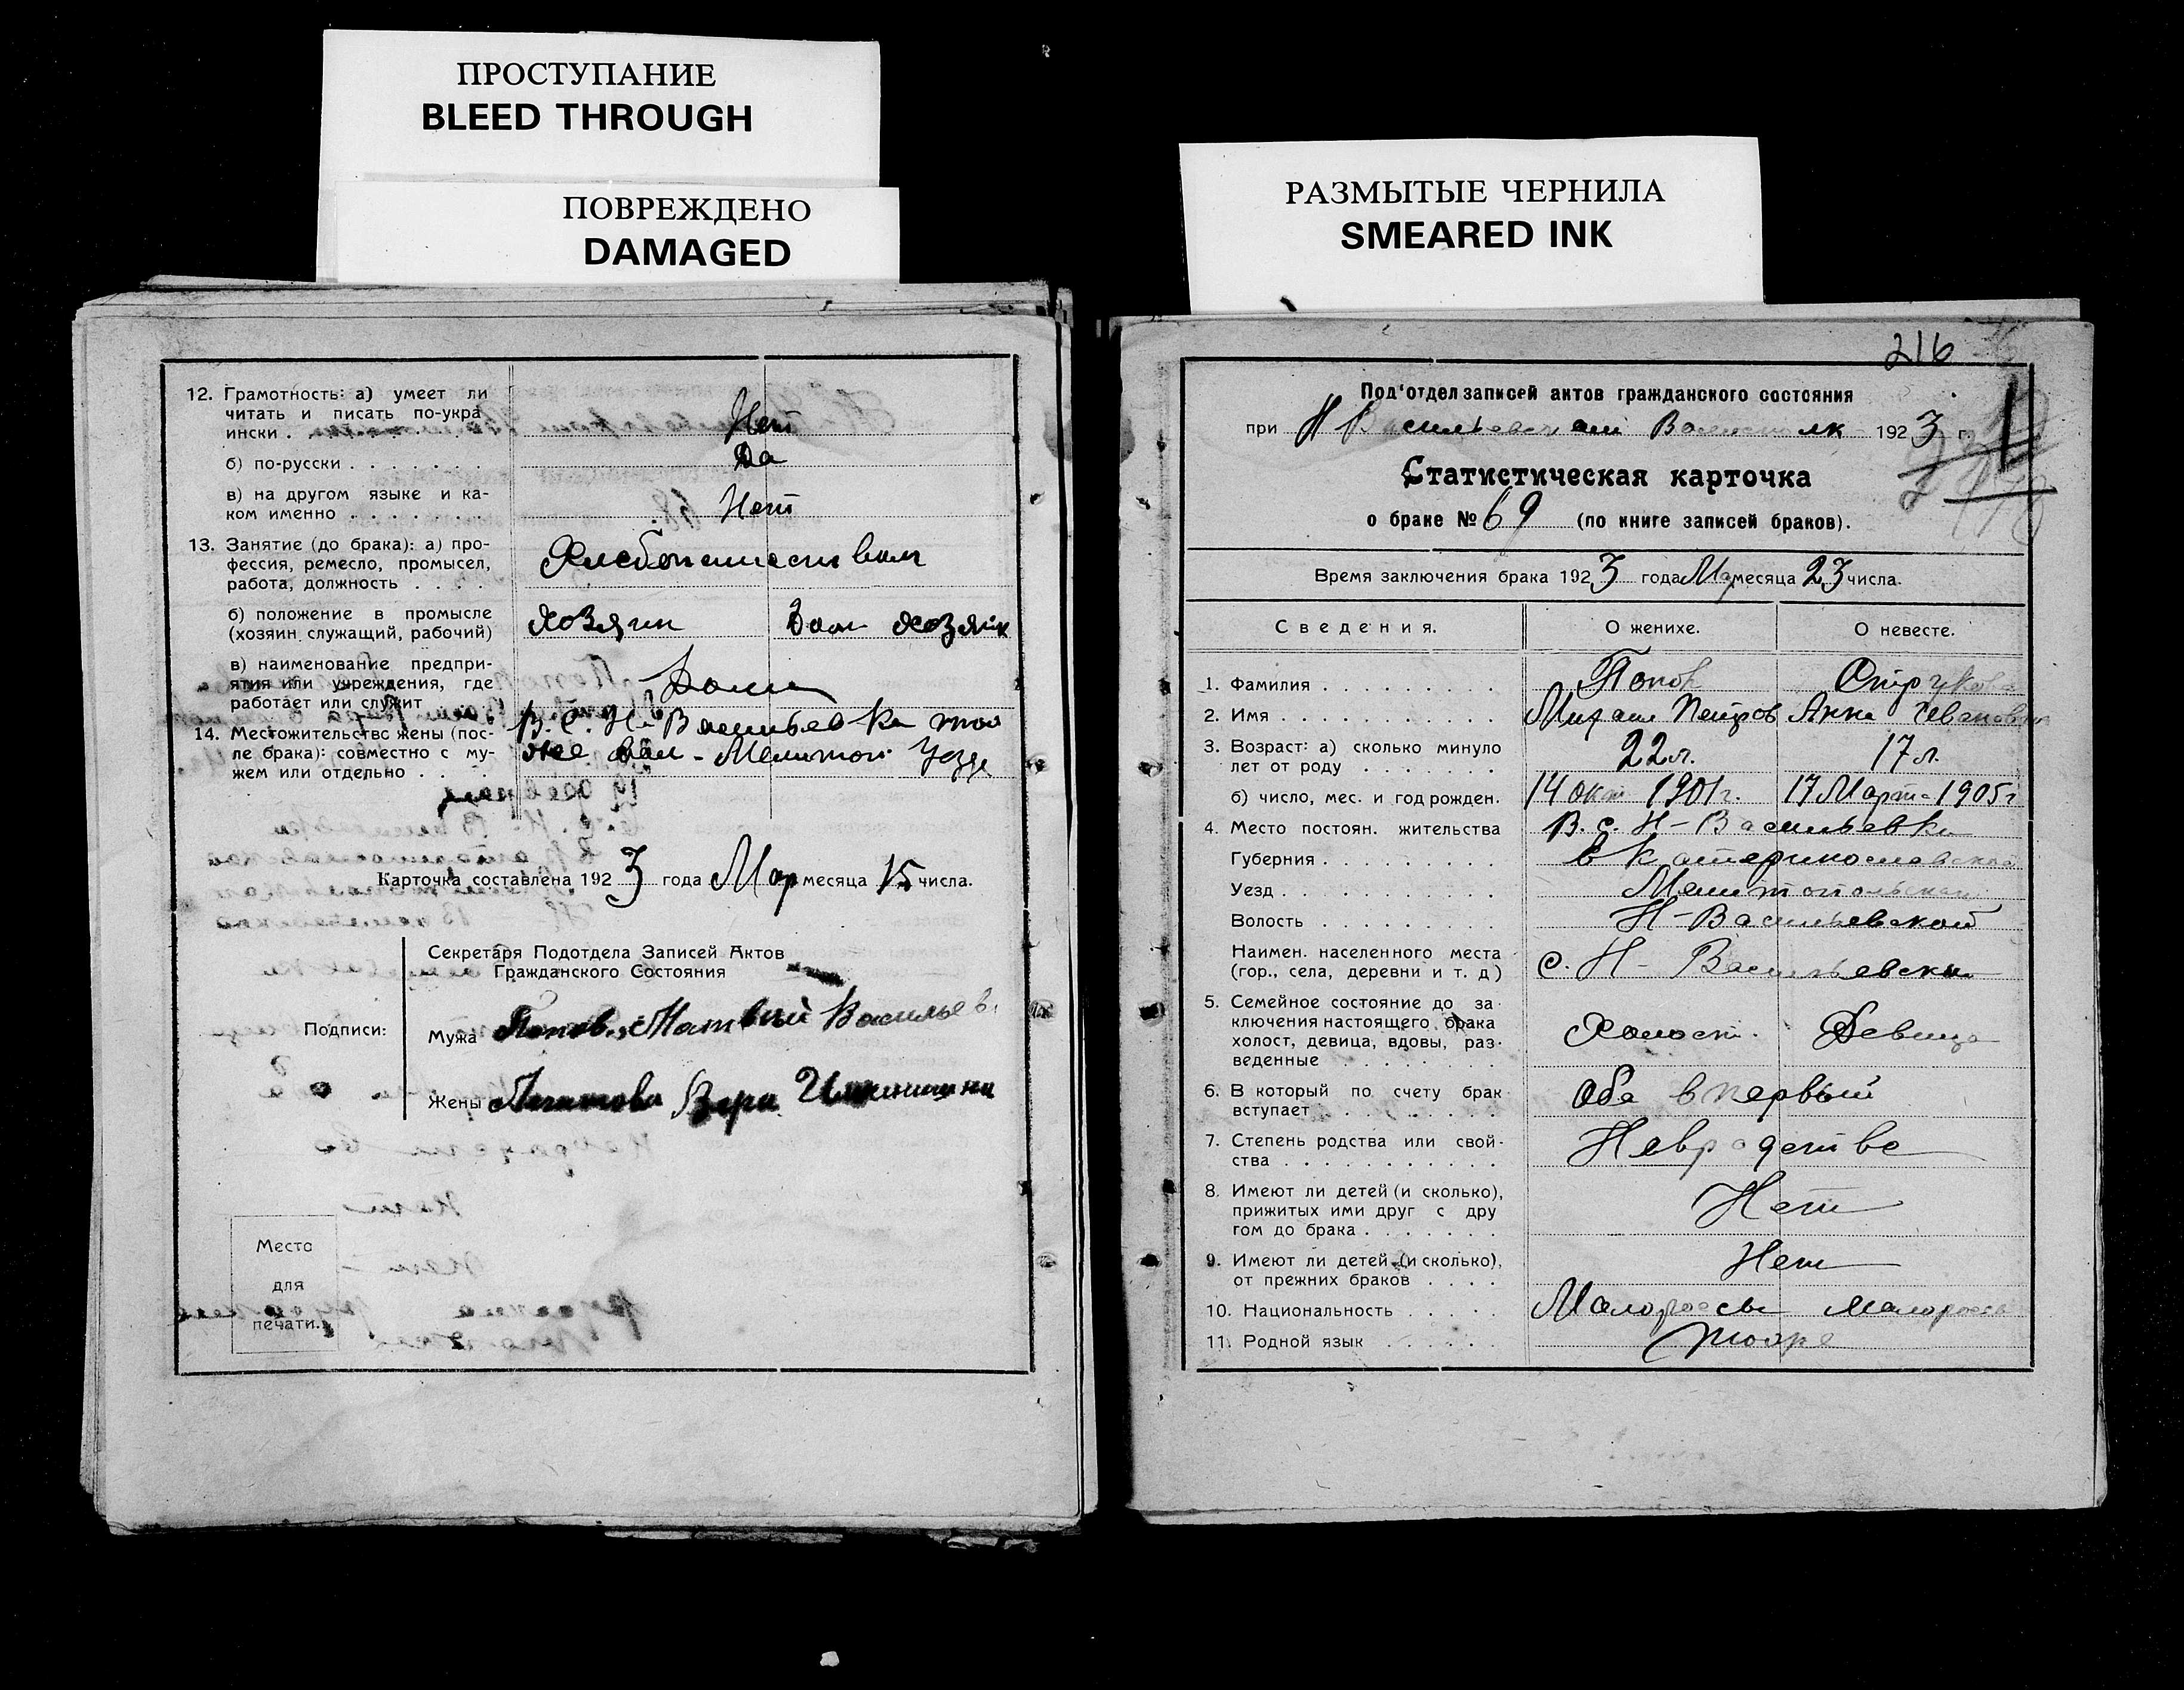 ПРОСТУПАНИЕ
BLEED THROUGH
ПОВРЕЖДЕНО
DAMAGED
12. Грамотность: а) умеет ли
читать и писать по-укра
ински . . . . . . . . Нет
б) по-русски . . . . . . . Да
в) на другом языке и ка-
ком именно . . . . . . . Нет
13. Занятие (до брака): а) про-
фессия, ремесло, промысел,
работа, должность . . . .
б) положение в промысле
(хозяин, служащий, рабочий) хозяин хозяйк
в) наименование предпри-
ятия или учреждения, где
работает или служит
14. Местожительство жены (пос-
ле брака): совместно с му-
жем или отдельно . . . .
В. С. Н-Васильевка той
же вол - Мелитоп Уезд
Карточка составлена 1923 года Мар месяца 15 числа.
Секретаря Подотдела Записей Актов
Гражданского Состояния
Подписи:
Мужа Попов Матвий Васильев
Жены Вера
Место
для
печати.
РАЗМЫТЫЕ ЧЕРНИЛА
SMEARED INK
216
Под'отдел записей актов гражданского состояния
при Н Васильевском 1923 г.
Статистическая карточка
о браке № 69 (по книге записей браков).
Время заключения брака 1923 года Мар месяца 23 числа.
Сведения. О женихе. О невесте.
1. Фамилия . . . . . . . . . Попов Струкова
2. Имя . . . . . . . . . . . Михаил Петров Анна Ивановна
3. Возраст: а) сколько минуло
лет от роду . . . . . . . 22 л. 17 л.
б) число, мес. и год рожден. 14 окт 1901 г. 17 Марта 1905 г
4. Место постоян. жительства В. с. Н-Васильевка
Губерния . . . . . . . . . Екатеринославской
Уезд . . . . . . . . . . . Мелитопольский
Волость . . . . . . . . . Н-Васильевской
Наимен. населенного места
(гор., села, деревни и т. д) с. Н-Васильевки
5. Семейное состояние до за-
ключения настоящего брака
холост, девица, вдовы, раз-
веденные . . . . . . . Холост. Девица
6. В который по счету брак
вступает . . . . . . . . Оба впервый
7. Степень родства или свой-
ства . . . . . . . . . . . Невродстве
8. Имеют ли детей (и сколько),
прижитых ими друг с дру
гом до брака . . . . . . . Нет
9. Имеют ли детей (и сколько),
от прежних браков . . . . Нет
10. Национальность . . . . .
11. Родной язык . . . . . .